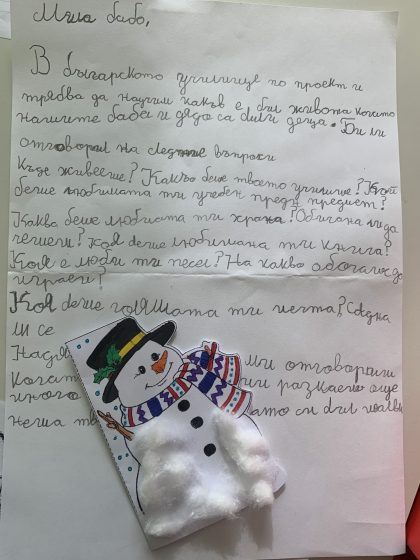 Мила бабо,
В българското училище по проект и
трябва да научим какъв е бил живота когато
нашите баби и дядо са били деца. Би ли
отговорил на следние въпроси
Къде живееше? Какъо беше твоето училище? Кой
беше любимата ти учебен предн предмет?
Каква беше любимата ти храна? Обичаш ли да
четеш? Коя беше любимана ти книга?
Коя е люби ти песен? На какво обогаше да
играеш?
Коя беше голямата ти мечта? Сбъдна
ли се
Надя ми отговориш
Когат ти разкаеш още
много като си бил малък
неща тв